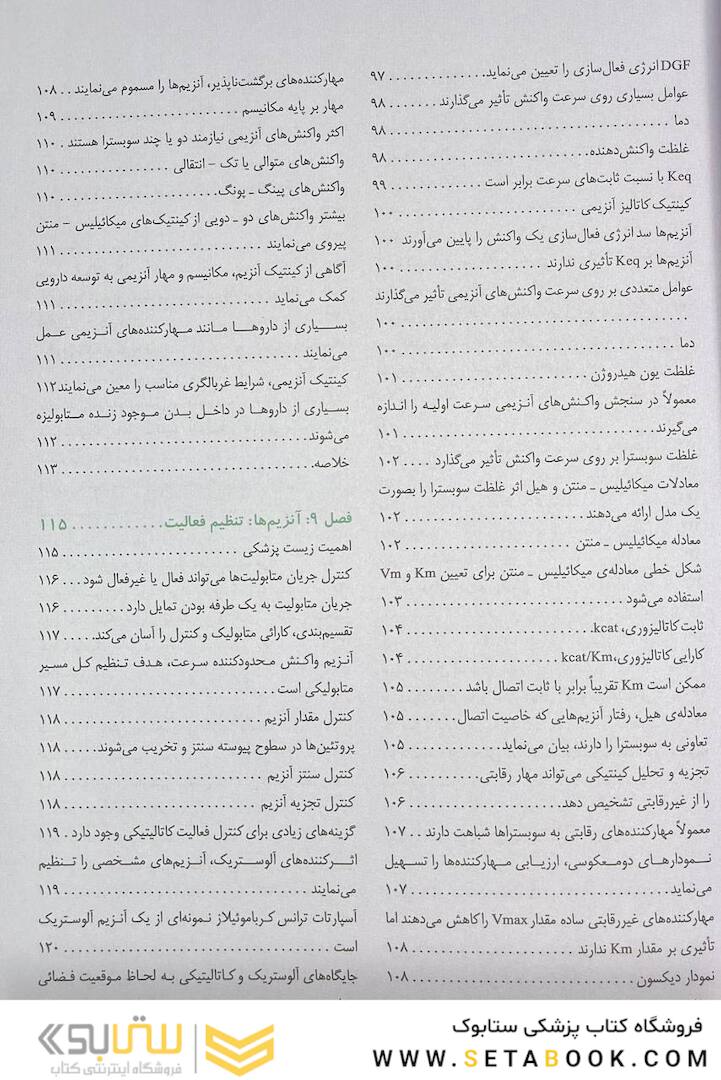 DGF انرژی فعال‌سازی را تعیین می‌نماید. . . . . . . . . . . . . . ۹۷
عوامل بسیاری روی سرعت واکنش تأثیر می‌گذارند . . . . . . . ۹۸
دما . . . . . . . . . . . . . . . . . . . . . . . . . . . . . . . . . . ۹۸
غلظت واکنش‌دهنده. . . . . . . . . . . . . . . . . . . . . . . . ۹۸
Keq با نسبت ثابت‌های سرعت برابر است . . . . . . . . . . . . ۹۹
کینتیک کاتالیز آنزیمی . . . . . . . . . . . . . . . . . . . . . ۱۰۰
آنزیم‌ها سد انرژی فعال‌سازی یک واکنش را پایین می‌آورند ۱۰۰
آنزیم‌ها بر Keq تأثیری ندارند . . . . . . . . . . . . . . . . . ۱۰۰
عوامل متعددی بر روی سرعت واکنش‌های آنزیمی تأثیر می‌گذارند
. . . . . . . . . . . . . . . . . . . . . . . . . . . . . . . . . . . . ۱۰۰
دما . . . . . . . . . . . . . . . . . . . . . . . . . . . . . . . . . ۱۰۰
غلظت یون هیدروژن . . . . . . . . . . . . . . . . . . . . . . . ۱۰۱
معمولاً در سنجش واکنش‌های آنزیمی سرعت اولیه را اندازه
می‌گیرند. . . . . . . . . . . . . . . . . . . . . . . . . . . . . . ۱۰۱
غلظت سوبسترا بر روی سرعت واکنش تأثیر می‌گذارد . . . . ۱۰۲
معادلات میکائیلیس ـ منتن و هیل اثر غلظت سوبسترا را بصورت
یک مدل ارائه می‌دهند . . . . . . . . . . . . . . . . . . . . . ۱۰۲
معادله میکائیلیس ـ منتن . . . . . . . . . . . . . . . . . . . ۱۰۲
شکل خطی معادله‌ی میکائیلیس ـ منتن برای تعیین Km و Vm
استفاده می‌شود . . . . . . . . . . . . . . . . . . . . . . . . . ۱۰۳
ثابت کاتالیزوری، kcat. . . . . . . . . . . . . . . . . . . . . . ۱۰۴
کارایی کاتالیزوری،kcat/Km . . . . . . . . . . . . . . . . . . ۱۰۴
ممکن است Km تقریباً برابر با ثابت اتصال باشد . . . . . . . . ۱۰۵
معادله‌ی هیل، رفتار آنزیم‌هایی که خاصیت اتصال . . . . . . . ۱۰۵
تعاونی به سوبسترا را دارند، بیان می‌نماید. . . . . . . . . . . . ۱۰۵
تجزیه و تحلیل کینتیکی می‌تواند مهار رقابتی. . . . . . . . . . ۱۰۶
را از غیررقابتی تشخیص دهد. . . . . . . . . . . . . . . . . . . ۱۰۶
معمولاً مهارکننده‌های رقابتی به سوبستراها شباهت دارند . . ۱۰۷
نمودارهای دومعکوسی، ارزیابی مهارکننده‌ها را تسهیل
می‌نماید. . . . . . . . . . . . . . . . . . . . . . . . . . . . . . ۱۰۷
مهارکننده‌های غیررقابتی ساده مقدار Vmax را کاهش می‌دهند اما
تأثیری بر مقدار Km ندارند . . . . . . . . . . . . . . . . . . . ۱۰۸
نمودار دیکسون . . . . . . . . . . . . . . . . . . . . . . . . . . ۱۰۸
مهارکننده‌های برگشت‌ناپذیر، آنزیم‌ها را مسموم می‌نمایند . . ۱۰۸
مهار بر پایه مکانیسم . . . . . . . . . . . . . . . . . . . . . . . ۱۰۹
اکثر واکنش‌های آنزیمی نیازمند دو یا چند سوبسترا هستند . ۱۱۰
واکنش‌های متوالی یا تک – انتقالی . . . . . . . . . . . . . . . ۱۱۰
واکنش‌های پینگ ـ پونگ. . . . . . . . . . . . . . . . . . . . . ۱۱۰
بیشتر واکنش‌های دو ـ دویی از کینتیک‌های میکائیلیس – منتن
پیروی می‌نمایند . . . . . . . . . . . . . . . . . . . . . . . . . ۱۱۱
آگاهی از کینتیک آنزیم، مکانیسم و مهار آنزیمی به توسعه دارویی
کمک می‌نماید . . . . . . . . . . . . . . . . . . . . . . . . . . ۱۱۱
بسیاری از داروها مانند مهارکننده‌های آنزیمی عمل
می‌نمایند . . . . . . . . . . . . . . . . . . . . . . . . . . . . . ۱۱۱
کینتیک آنزیمی، شرایط غربالگری مناسب را معین می‌نمایند۱۱۲
بسیاری از داروها در داخل بدن موجود زنده متابولیزه
می‌شوند . . . . . . . . . . . . . . . . . . . . . . . . . . . . . . ۱۱۲
خلاصه. . . . . . . . . . . . . . . . . . . . . . . . . . . . . . . . ۱۱۳
فصل ۹: آنزیم‌ها: تنظیم فعالیت. . . . . . . . . . . . ۱۱۵
اهمیت زیست پزشکی . . . . . . . . . . . . . . . . . . . . . . ۱۱۵
کنترل جریان متابولیت‌ها می‌تواند فعال یا غیرفعال شود . . . ۱۱۶
جریان متابولیت به یک طرفه بودن تمایل دارد . . . . . . . . . ۱۱۶
تقسیم‌بندی، کارائی متابولیک و کنترل را آسان می‌کند. . . . . ۱۱۷
آنزیم واکنش محدودکننده سرعت، هدف تنظیم کل مسیر
متابولیکی است . . . . . . . . . . . . . . . . . . . . . . . . . . ۱۱۷
کنترل مقدار آنزیم . . . . . . . . . . . . . . . . . . . . . . . . ۱۱۸
پروتئین‌ها در سطوح پیوسته سنتز و تخریب می‌شوند. . . . . ۱۱۸
کنترل سنتز آنزیم . . . . . . . . . . . . . . . . . . . . . . . . ۱۱۸
کنترل تجزیه آنزیم . . . . . . . . . . . . . . . . . . . . . . . ۱۱۸
گزینه‌های زیادی برای کنترل فعالیت کاتالیتیکی وجود دارد . ۱۱۹
اثرکننده‌های آلوستریک، آنزیم‌های مشخصی را تنظیم
می‌نمایند . . . . . . . . . . . . . . . . . . . . . . . . . . . . . ۱۱۹
آسپارتات ترانس کرباموئیلاز نمونه‌ای از یک آنزیم آلوستریک
است . . . . . . . . . . . . . . . . . . . . . . . . . . . . . . . . ۱۲۰
جایگاه‌های آلوستریک و کاتالیتیکی به لحاظ موقعیت فضائی
فروشگاه کتاب پزشکی ستابوک
WWW.SETABOOK.COM
ستابوک
فروشگاه اینترنتی کتاب